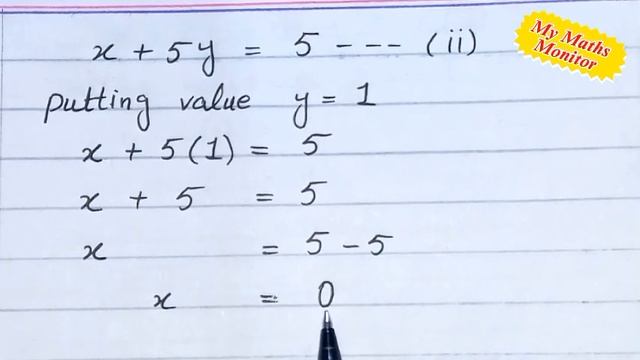 x + 5y = 5 --- (ii)
My Maths
Monitor
putting value y = 1
x + 5(1) = 5
x + 5 = 5
x = 5 - 5
x = 0